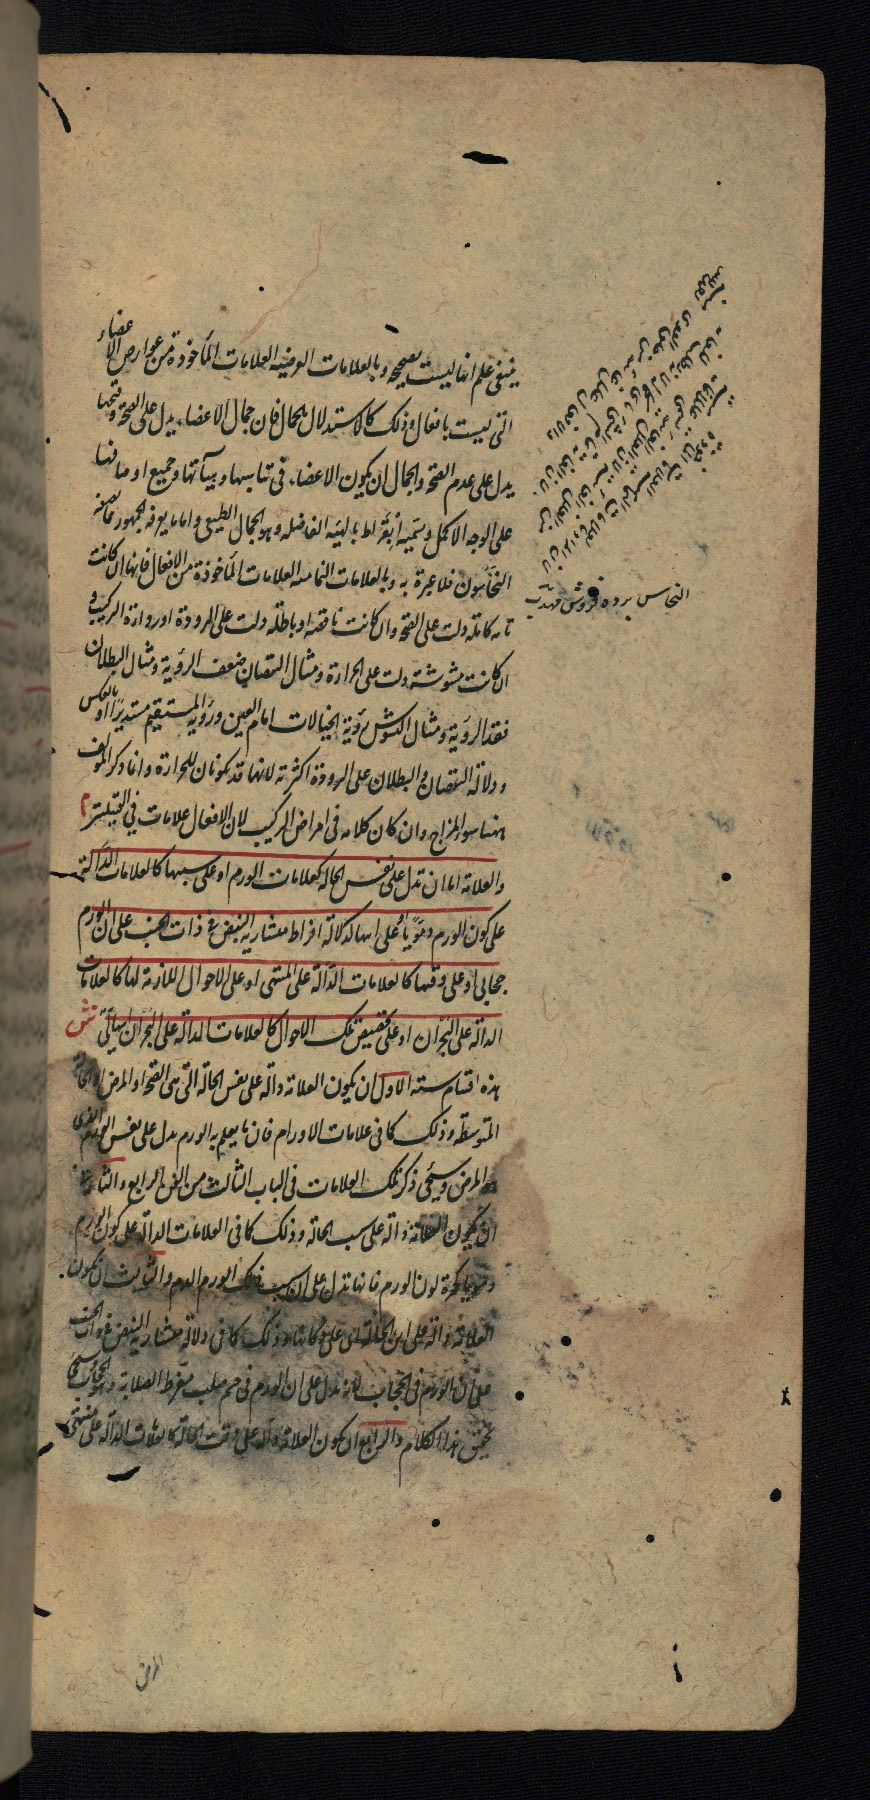 ينبغي علم انها ليست بصحيحه وبالعلامات العرضيه العلامات المأخوذة من عوارض الاعضاء
التى ليست بافعال وذلك كالاستدلال بالجمال فان جمال الاعضاء يدل على الصحة وقبحها
يدل على عدم الصحة والجمال ان يكون الاعضاء فى تناسبها وهيآتها وجميع اوصافها
على الوجه الاكمل وسميه أبقراط بالهيئه الفاضله وهو الجمال الطبيعى واما ما يعرفه الجمهور مما يصفه
النخاسون فلا عبرة به وبالعلامات التماميه العلامات المأخوذة من الافعال فانها ان كانت
تامه كاملة دلت على الصحة وان كانت ناقصه او باطلة دلت على البرودة او رداءة التركيب و
ان كانت مشوشة دلت على الحرارة ومثال النقصان ضعف الرؤية ومثال البطلان
فقد الرؤية ومثال التشوش رؤية الخيالات امام العين ورؤية المستقيم مستديرًا او بالعكس
ودلالة النقصان والبطلان على البرودة اكثرية لانها قد يكونان للحرارة وانما ذكر المؤلف
ههنا سوء المزاج وان كان كلامه فى امراض التركيب لان الافعال علامات فى القبيلتين م
والعلامة اما ان تدل على نفس الحالة كعلامات الورم او على سببها كالعلامات الدالة
على كون الورم دمويًا او على اينها لدلالة افراط منشارية النبض فى ذات الجنب على ان الورم
حجابى او على وقتها كالعلامات الدالة على المنتهى او على الاحوال اللازمة لها كالعلامات
الدالة على البحران او على تخصيص تلك الاحوال كالعلامات الدالة على البحران اسهالى ش
هذه اقسام ستة الاول ان يكون العلامة دالة على نفس الحالة التى هى الصحة او المرض او الحالة
المتوسطة وذلك كما فى علامات الاورام فان ما يعلم به الورم يدل على نفس الورم الذى
هو المرض وسيجى ذكر تلك العلامات فى الباب الثالث من الفن الرابع والثانى
ان يكون العلامة دالة على سبب الحالة وذلك كما فى العلامات الدالة على كون الورم
دمويا كحمرة لون الورم فانها تدل على ان سبب ذلك الورم الدم والثالث ان يكون
العلامة دالة على اين الحالة اى على مكانها وذلك كما فى دلالة منشارية النبض فى ذات الجنب
على ان الورم فى الحجاب لانه يدل على ان الورم فى جرم صلب مفرط الصلابة وهو الحجاب وسيجى
تحقيق هذا الكلام والرابع ان يكون العلامة دالة على وقت الحالة كالعلامات الدالة على منتهى
النخاس برده فروش مهذب
المرض